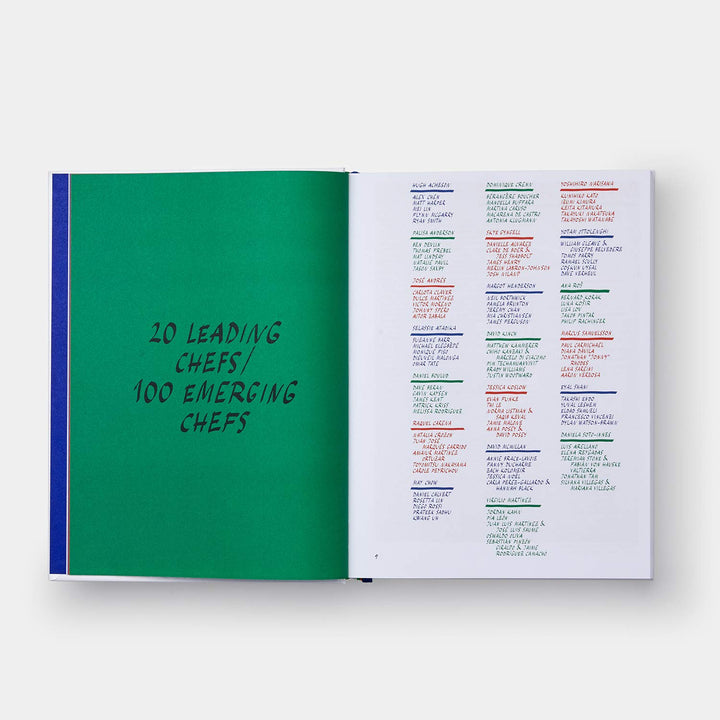 20 LEADING
CHEFS/
100 EMERGING
CHEFS
HUGH ACHESON
ALEX CHEN
MATT HARPER
MEI LIN
FLYNN MCGARRY
RYAN SMITH
PALISA ANDERSON
BEN DEVLIN
THOMAS FREBEL
MAT LINDSAY
NATALIE PAULL
JASON SAXBY
JOSÉ ANDRÉS
CARLOTA CLAVER
DULCE MARTÍNEZ
VÍCTOR MORENO
JOHNNY SPERO
AITOR ZABALA
SELASSIE ATADIKA
SUZANNE BARR
MICHAEL ELÉGBÈDÉ
MONIQUE FISO
DIEUVEIL MALONGA
OMAR TATE
DANIEL BOULUD
DAVE BERAN
GAVIN KAYSEN
JAMES KENT
PATRICK KRISS
MELISSA RODRIGUEZ
RAQUEL CARENA
NATALIA CROZON
JUAN JOSÉ
MARQUÉS GARRIDO
AMAIUR MARTÍNEZ
ORTUZAR
TOYOMITSU NAKAYAMA
CAROLE PEYRICHOU
MAY CHOW
DANIEL CALVERT
ROSETTA LIN
DIEGO ROSSI
PRATEEK SADHU
KWANG UH
DOMINIQUE CRENN
BÉRANGÈRE BOUCHER
MANOELLA BUFFARA
MARTINA CARUSO
MACARENA DE CASTRO
ANTONIA KLUGMANN
SKYE GYNGELL
DANIELLE ALVAREZ
CLARE DE BOER &
JESS SHADBOLT
JAMES HENRY
MERLIN LABRON-JOHNSON
JOSH NILAND
MARGOT HENDERSON
NEIL BORTHWICK
PAMELA BRUNTON
JEREMY CHAN
MIA CHRISTIANSEN
JAMES FERGUSON
DAVID KINCH
MATTHEW KAMMERER
CHIHO KANZAKI &
MARCELO DI GIACOMO
PIM TECHAMUANVIVIT
BRADY WILLIAMS
JUSTIN WOODWARD
JESSICA KOSLOW
EVAN FUNKE
TAI LE
NORMA LISTMAN &
SAQIB KEVAL
JAMIE MALONE
ANNA POSEY &
DAVID POSEY
DAVID MCMILLAN
ANNIE BRACE-LAVOIE
FANNY DUCHARME
ZACH KOLOMEIR
JESSICA NOËL
CARLA PEREZ-GALLARDO &
HANNAH BLACK
VIRGILIO MARTÍNEZ
JORDAN KAHN
PÍA LEÓN
JUAN LUIS MARTÍNEZ &
JOSÉ LUIS SAUME
OSWALDO OLIVA
SEBASTIÁN PINZÓN
GIRALDO & JAIME
RODRÍGUEZ CAMACHO
YOSHIHIRO NARISAWA
KUNIHIRO KATO
IZUMI KIMURA
KEITA KITAMURA
TAKAYUKI NAKATSUKA
TAKAYOSHI WATANABE
YOTAM OTTOLENGHI
WILLIAM GLEAVE &
GIUSEPPE BELVEDERE
TOMOS PARRY
RAMAEL SCULLY
COSKUN UYSAL
DAVE VERHEUL
ANA ROŠ
BERNARD KORAK
LUKA KOŠIR
LISA LOV
JAKOB PINTAR
PHILIP RACHINGER
MARCUS SAMUELSSON
PAUL CARMICHAEL
DIANA DÁVILA
JONATHAN "JONNY"
RHODES
LENA SARDINI
AARON VERZOSA
EYAL SHANI
TAKASHI ENDO
YUVAL LESHEM
ELDAD SHMUELI
FRANCESCO VINCENZI
DYLAN WATSON-BRAWN
DANIELA SOTO-INNES
LUIS ARELLANO
ELENA REYGADAS
JEREMIAH STONE &
FABIÁN VON HAUSKE
VALTIERRA
JONATHAN TAM
SILVANA VILLEGAS &
MARIANA VILLEGAS